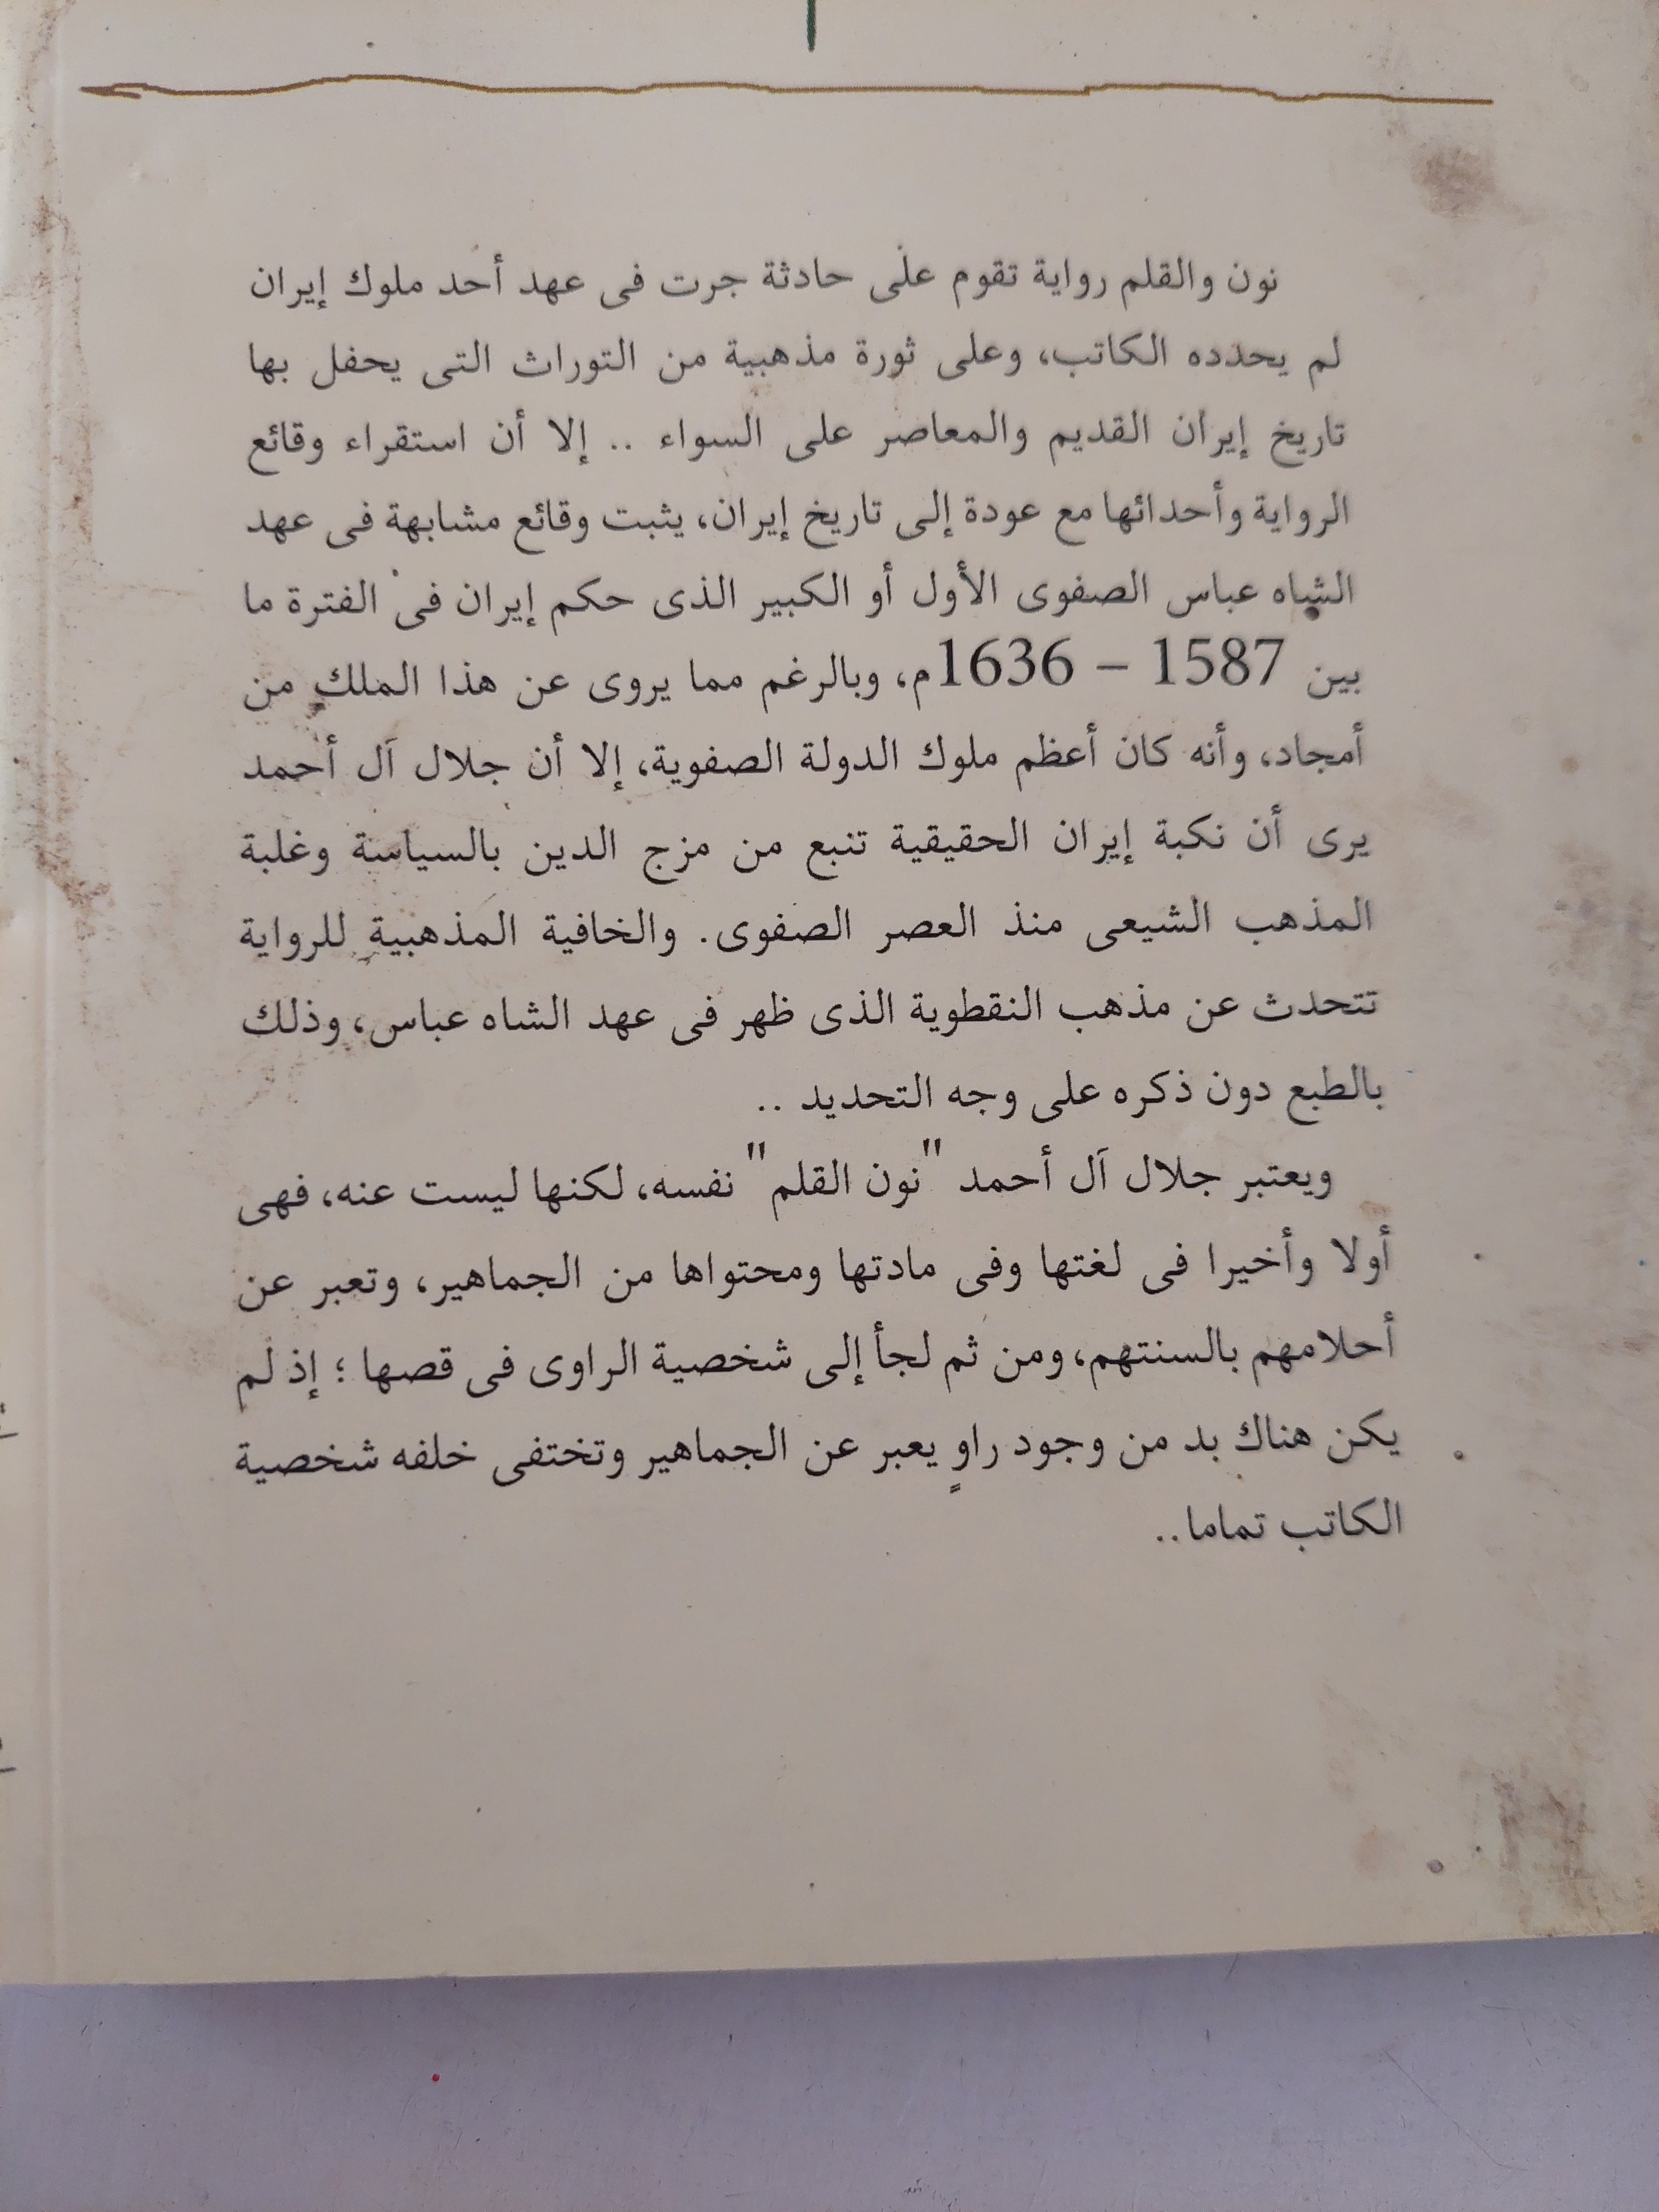 نون والقلم رواية تقوم على حادثة جرت فى عهد أحد ملوك إيران
لم يحدده الكاتب، وعلى ثورة مذهبية من التوراث التى يحفل بها
تاريخ إيران القديم والمعاصر على السواء .. إلا أن استقراء وقائع
الرواية وأحداثها مع عودة إلى تاريخ إيران، يثبت وقائع مشابهة فى عهد
الشاه عباس الصفوى الأول أو الكبير الذى حكم إيران فى الفترة ما
بين 1587 – 1636م، وبالرغم مما يروى عن هذا الملك من
أمجاد، وأنه كان أعظم ملوك الدولة الصفوية، إلا أن جلال آل أحمد
يرى أن نكبة إيران الحقيقية تنبع من مزج الدين بالسياسة وغلبة
المذهب الشيعى منذ العصر الصفوى. والخافية المذهبية للرواية
تتحدث عن مذهب النقطوية الذى ظهر فى عهد الشاه عباس، وذلك
بالطبع دون ذكره على وجه التحديد ..
ويعتبر جلال آل أحمد "نون القلم" نفسه، لكنها ليست عنه، فهى
أولا وأخيرا فى لغتها وفى مادتها ومحتواها من الجماهير، وتعبر عن
أحلامهم بالسنتهم، ومن ثم لجأ إلى شخصية الراوى فى قصها ؛ إذ لم
يكن هناك بد من وجود راوٍ يعبر عن الجماهير وتختفى خلفه شخصية
الكاتب تماما..